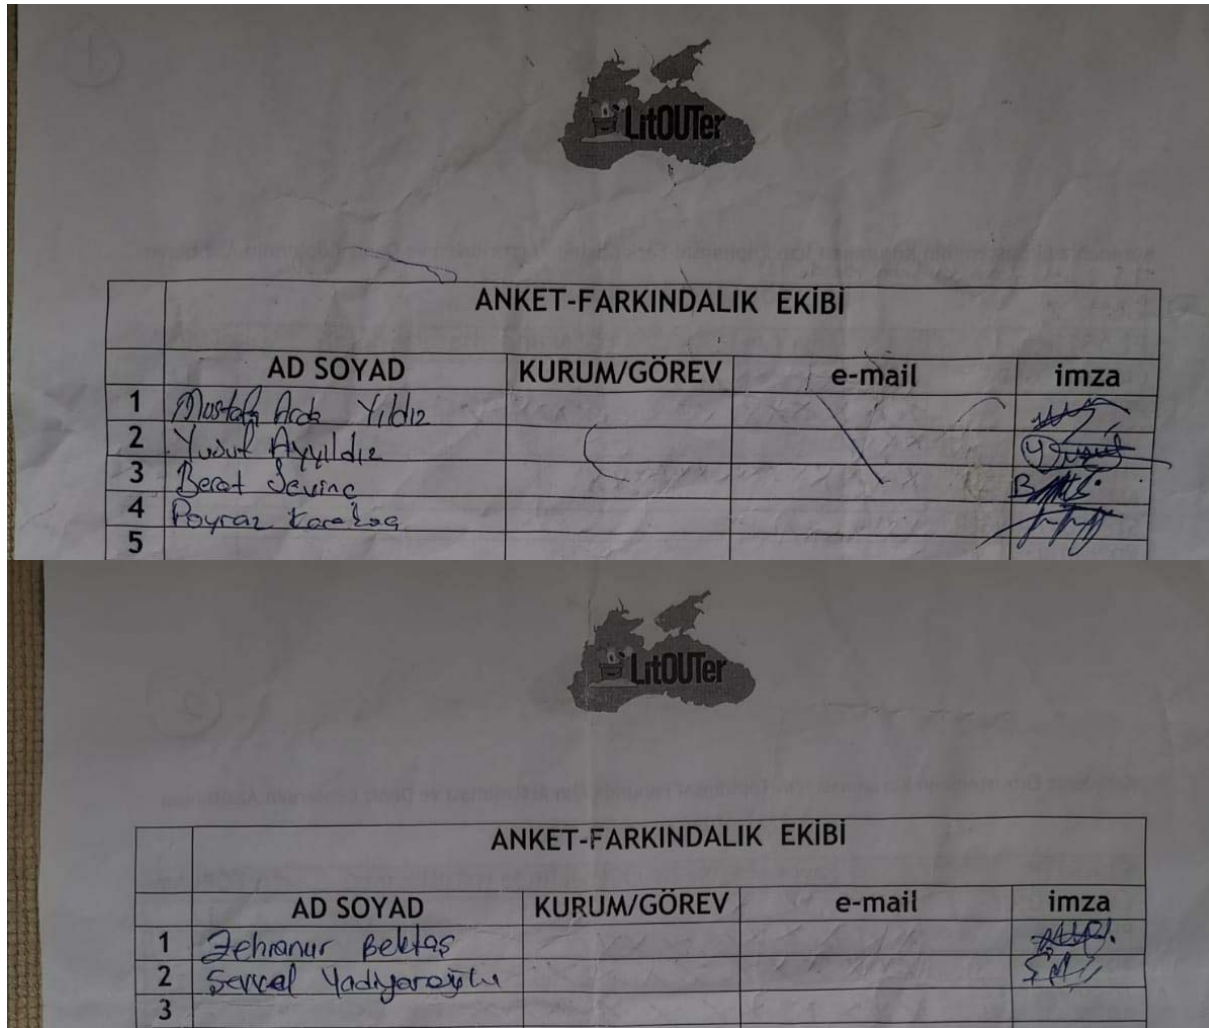 LitOUTer
ANKET-FARKINDALIK EKİBİ
AD SOYAD KURUM/GÖREV e-mail imza
1 Mustafa Arda Yıldız
2 Yusuf Ayyıldız Yusuf
3 Berat Sevinç
4 Poyraz
5
LitOUTer
ANKET-FARKINDALIK EKİBİ
AD SOYAD KURUM/GÖREV e-mail imza
1 Zehranur Bektaş
2 Yadigaroğlu
3